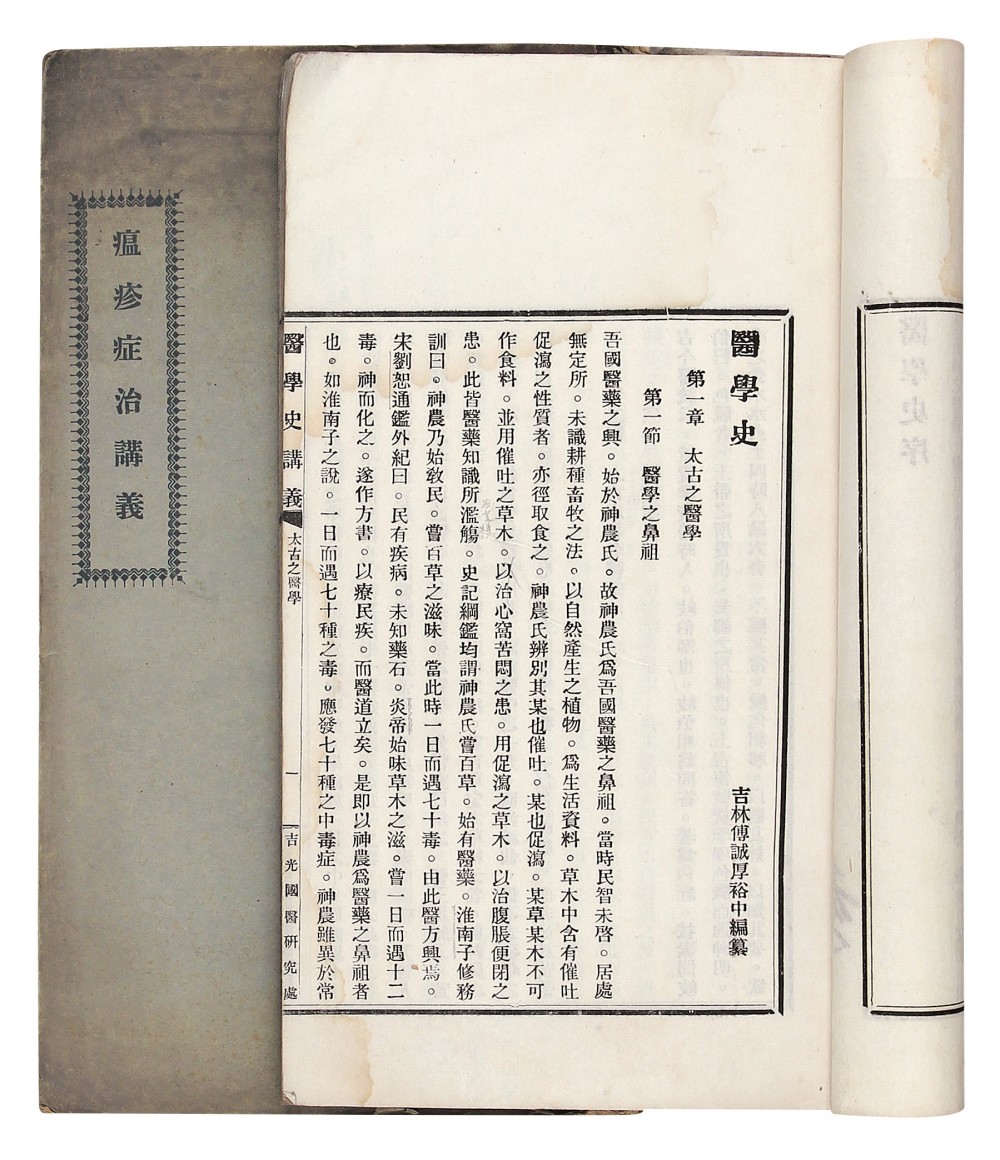 瘟疹症治講義
醫學史
第一章　太古之醫學
第一節　醫學之鼻祖
吉林傅誠厚裕中編纂
吾國醫藥之興。始於神農氏。故神農氏爲吾國醫藥之鼻祖。當時民智未啓。居處
無定所。未識耕種畜牧之法。以自然產生之植物。爲生活資料。草木中含有催吐
促瀉之性質者。亦徑取食之。神農氏辨別其某也催吐。某也促瀉。某草某木不可
作食料。並用催吐之草木。以治心窩苦悶之患。用促瀉之草木。以治腹脹便閉之
患。此皆醫藥知識所濫觴。史記綱鑑均謂神農氏嘗百草。始有醫藥。淮南子修務
訓曰。神農乃始敎民。嘗百草之滋味。當此時一日而遇七十毒。由此醫方興焉。
宋劉恕通鑑外紀曰。民有疾病。未知藥石。炎帝始味草木之滋。嘗一日而遇十二
毒。神而化之。遂作方書。以療民疾。而醫道立矣。是即以神農爲醫藥之鼻祖者
也。如淮南子之說。一日而遇七十種之毒。應發七十種之中毒症。神農雖異於常
醫學史講義　太古之醫學　一　吉光國醫研究處
醫學史序